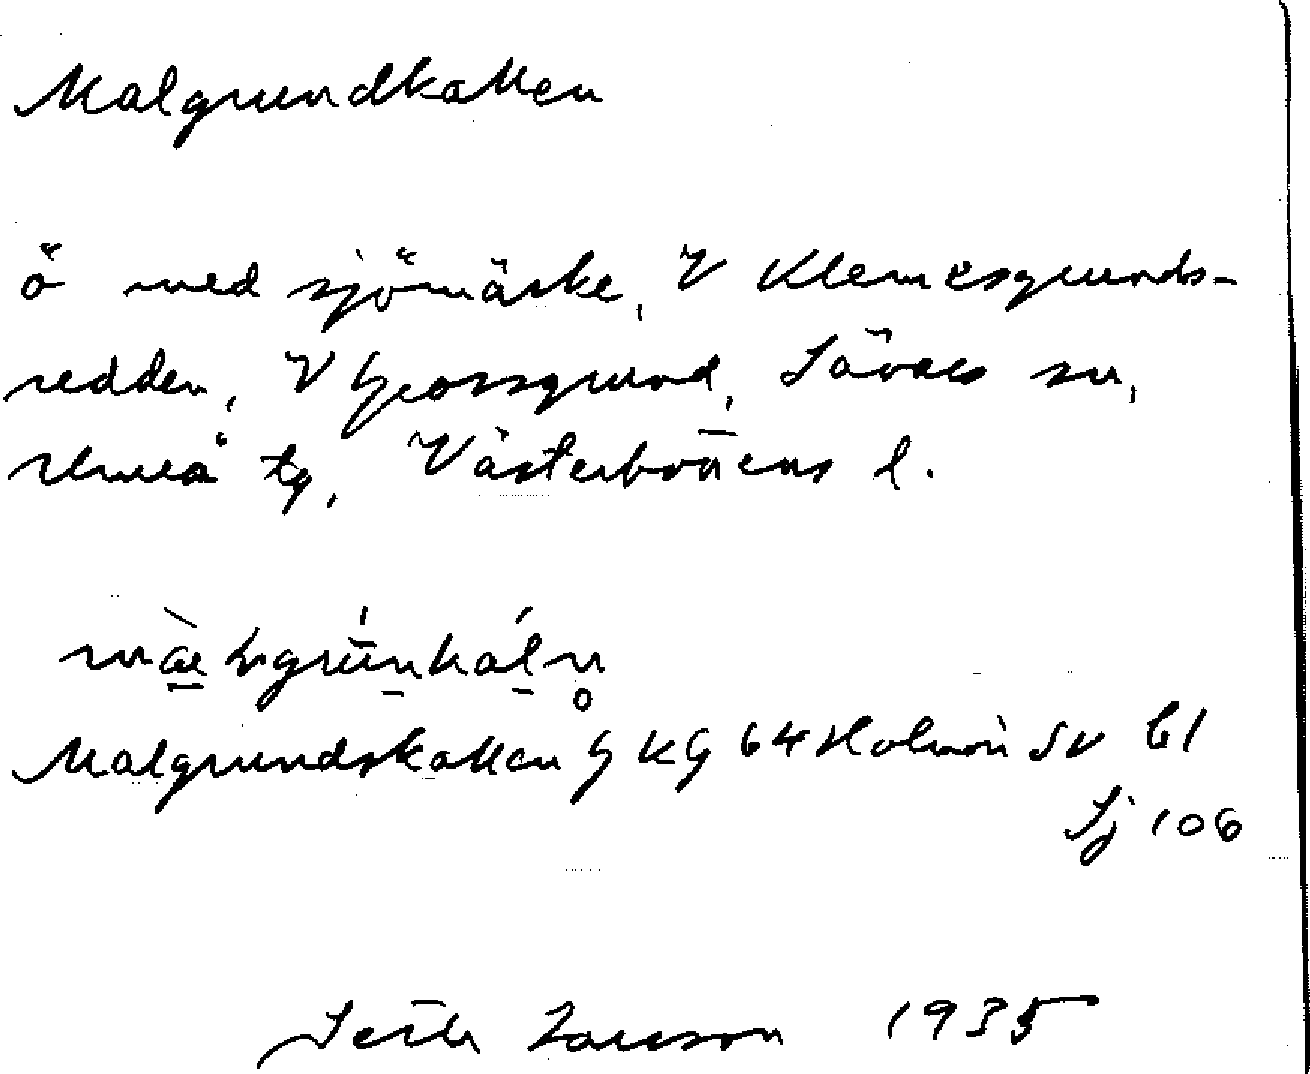 Malgrundkallen
ö med sjömärke, V Klemesgrunds-
redden, V Grossgrund, Sävars sn,
Umeå tg, Västerbottens l.
Malgrundskallen G KG 64 Holmön SV bl
Sj 106
Larsson 1935